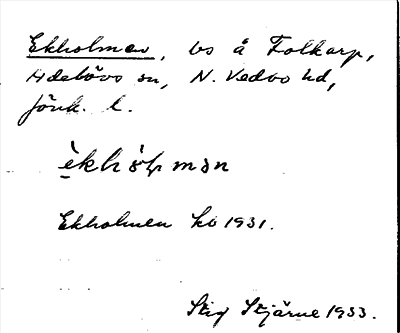 Ekholmen, ls å Folkarp,
Adelövs sn, N. Vedbo hd,
Jönk. l.
èkhòḷmən
Ekholmen kö 1931.
Stig Stjärne 1933.